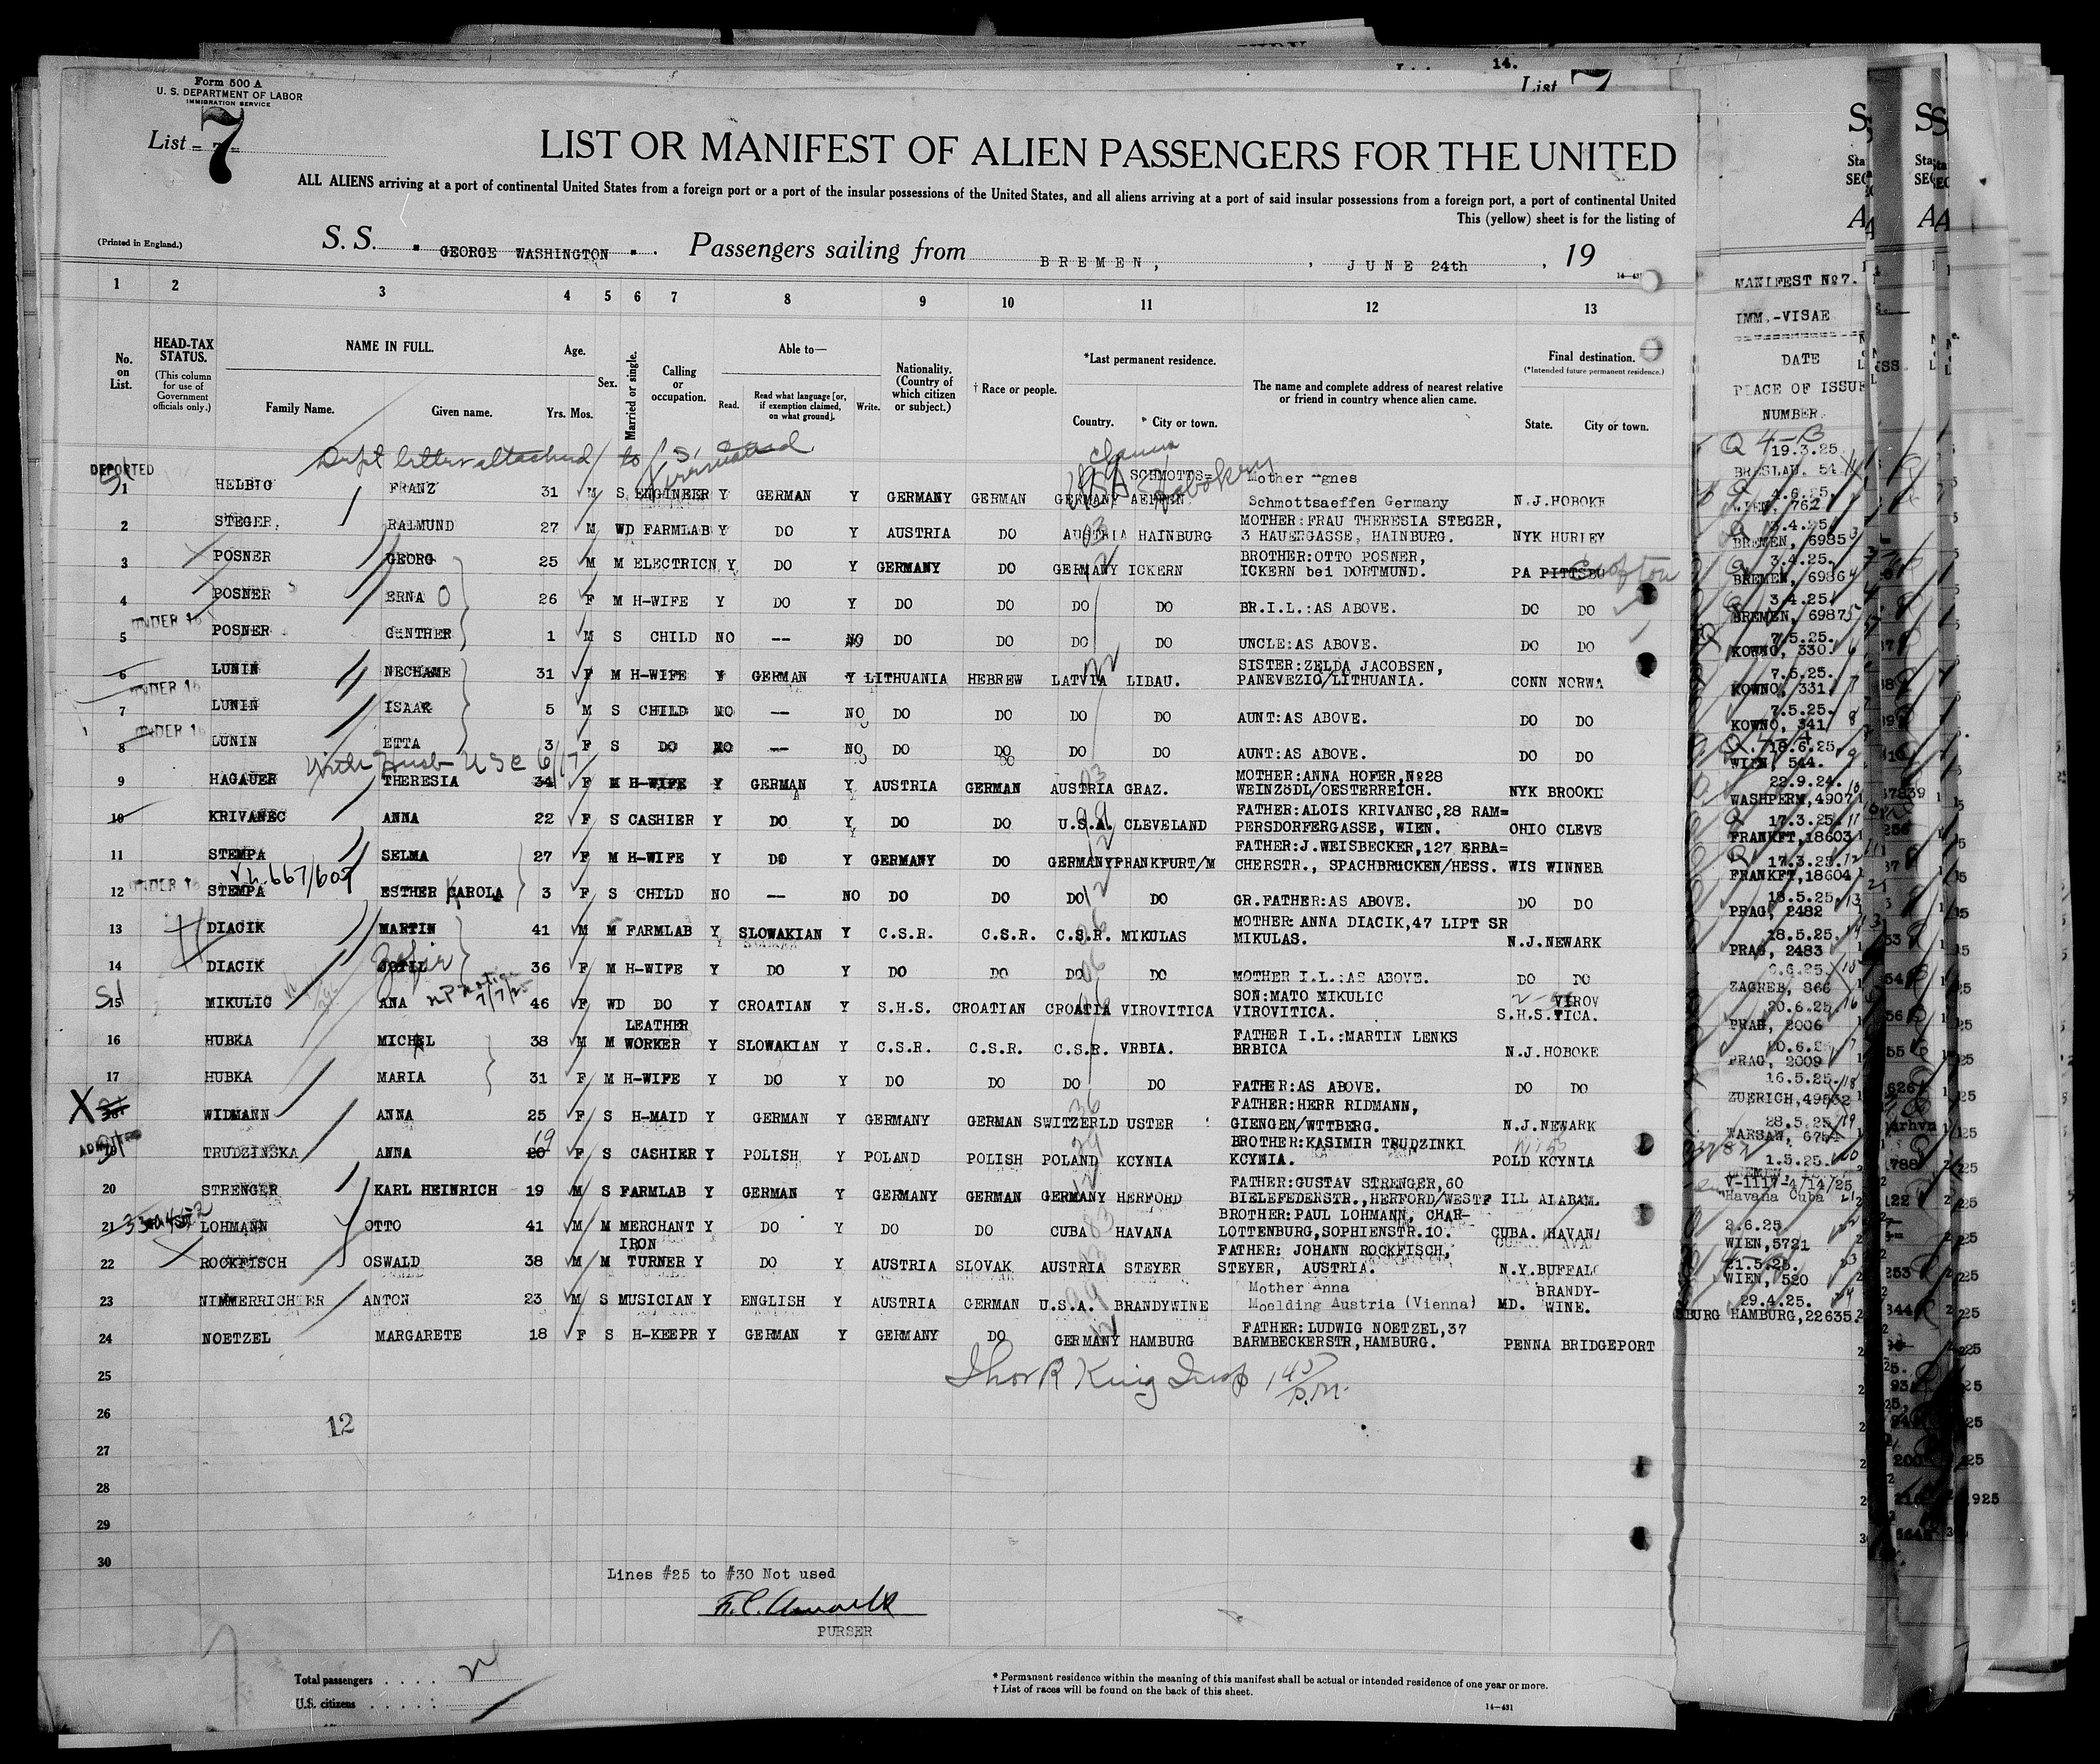 Form 500 A
U. S. DEPARTMENT OF LABOR
IMMIGRATION SERVICE
List 7
LIST OR MANIFEST OF ALIEN PASSENGERS FOR THE UNITED
ALL ALIENS arriving at a port of continental United States from a foreign port or a port of the insular possessions of the United States, and all aliens arriving at a port of said insular possessions from a foreign port, a port of continental United
This (yellow) sheet is for the listing of
(Printed in England.)
S. S. " GEORGE WASHINGTON " . Passengers sailing from BREMEN, , JUNE 24th , 19
1 2 3 4 5 6 7 8 9 10 11 12 13
No. on List.
HEAD-TAX STATUS.
(This column for use of Government officials only.)
NAME IN FULL.
Family Name. Given name.
Age.
Yrs. Mos.
Sex.
Married or single.
Calling or occupation.
Able to—
Read. Read what language [or, if exemption claimed, on what ground]. Write.
Nationality. (Country of which citizen or subject.)
† Race or people.
*Last permanent residence.
Country. City or town.
The name and complete address of nearest relative or friend in country whence alien came.
Final destination.
(*Intended future permanent residence.)
State. City or town.
Dept letter attached to
DEPORTED
1 HELBIG FRANZ 31 M S ENGINEER Y GERMAN Y GERMANY GERMAN GERMANY SCHMOTTS= AEFFEN Mother Agnes Schmottsaeffen Germany N.J. HOBOKE
USA Hoboken
2 STEGER, RAIMUND 27 M WD FARMLAB Y DO Y AUSTRIA DO AUSTRIA HAINBURG MOTHER: FRAU THERESIA STEGER, 3 HAUERGASSE, HAINBURG. NYK HURLEY
3 POSNER GEORG 25 M M ELECTRICN Y DO Y GERMANY DO GERMANY ICKERN BROTHER: OTTO POSNER, ICKERN bei DORTMUND. PA PITTSBU Crafton
4 POSNER ERNA 26 F M H-WIFE Y DO Y DO DO DO DO BR.I.L.: AS ABOVE. DO DO
UNDER 16
5 POSNER GÜNTHER 1 M S CHILD NO -- NO DO DO DO DO UNCLE: AS ABOVE. DO DO
6 LUNIN NECHAME 31 F M H-WIFE Y GERMAN Y LITHUANIA HEBREW LATVIA LIBAU. SISTER: ZELDA JACOBSEN, PANEVEZIO/LITHUANIA. CONN NORWA
UNDER 16
7 LUNIN ISAAK 5 M S CHILD NO -- NO DO DO DO DO AUNT: AS ABOVE. DO DO
UNDER 16
8 LUNIN ETTA 3 F S DO NO -- NO DO DO DO DO AUNT: AS ABOVE. DO DO
9 HAGAUER THERESIA 34 F M H-WIFE Y GERMAN Y AUSTRIA GERMAN AUSTRIA GRAZ. MOTHER: ANNA HOFER, No28 WEINZÖDL/OESTERREICH. NYK BROOKL
10 KRIVANEC ANNA 22 F S CASHIER Y DO Y DO DO U.S.A. CLEVELAND FATHER: ALOIS KRIVANEC, 28 RAM= PERSDORFERGASSE, WIEN. OHIO CLEVE
11 STEMPA SELMA 27 F M H-WIFE Y DO Y GERMANY DO GERMANY FRANKFURT/M FATHER: J. WEISBECKER, 127 ERBA= CHERSTR., SPACHBRÜCKEN/HESS. WIS WINNER
UNDER 16
12 STEMPA ESTHER KAROLA 3 F S CHILD NO -- NO DO DO DO DO GR. FATHER: AS ABOVE. DO DO
13 DIACIK MARTIN 41 M M FARMLAB Y SLOWAKIAN Y C.S.R. C.S.R. C.S.R. MIKULAS MOTHER: ANNA DIACIK, 47 LIPT SR MIKULAS. N.J. NEWARK
14 DIACIK Zofir 36 F M H-WIFE Y DO Y DO DO DO DO MOTHER I.L.: AS ABOVE. DO DO
15 MIKULIC ANA 46 F WD DO Y CROATIAN Y S.H.S. CROATIAN CROATIA VIROVITICA SON: MATO MIKULIC VIROVITICA. S.H.S. VIROV TICA.
16 HUBKA MICHEL 38 M M LEATHER WORKER Y SLOWAKIAN Y C.S.R. C.S.R. C.S.R. VRBIA. FATHER I.L.: MARTIN LENKS BRBICA N.J. HOBOKE
17 HUBKA MARIA 31 F M H-WIFE Y DO Y DO DO DO DO FATHER: AS ABOVE. DO DO
X 18 WIDMANN ANNA 25 F S H-MAID Y GERMAN Y GERMANY GERMAN SWITZERLD USTER FATHER: HERR RIDMANN, GIENGEN/WTTBERG. N.J. NEWARK
ADMITTED
19 TRUDZINSKA ANNA 20 19 F S CASHIER Y POLISH Y POLAND POLISH POLAND KCYNIA BROTHER: KASIMIR TRUDZINKI KCYNIA. POLD KCYNIA
20 STRENGER KARL HEINRICH 19 M S FARMLAB Y GERMAN Y GERMANY GERMAN GERMANY HERFORD FATHER: GUSTAV STRENGER, 60 BIELEFEDENSTR., HERFORD/WESTF ILL ALABAM.
21 LOHMANN OTTO 41 M M MERCHANT Y DO Y DO DO CUBA HAVANA BROTHER: PAUL LOHMANN, CHAR- LOTTENBURG, SOPHIENSTR. 10. CUBA. HAVANA
22 ROCKFISCH OSWALD 38 M M IRON TURNER Y DO Y AUSTRIA SLOVAK AUSTRIA STEYER FATHER: JOHANN ROCKFISCH, STEYER, AUSTRIA. N.Y. BUFFALO
23 NIMMERRICHTER ANTON 23 M S MUSICIAN Y ENGLISH Y AUSTRIA GERMAN U.S.A. BRANDYWINE Mother Anna Moelding Austria (Vienna) MD. BRANDY- WINE.
24 NOETZEL MARGARETE 18 F S H-KEEPR Y GERMAN Y GERMANY DO GERMANY HAMBURG FATHER: LUDWIG NOETZEL, 37 BARMBECKERSTR, HAMBURG. PENNA BRIDGEPORT
25
26
27
28
29
30
12
Lines #25 to #30 Not used
PURSER
Total passengers
U.S. citizens
* Permanent residence within the meaning of this manifest shall be actual or intended residence of one year or more.
† List of races will be found on the back of this sheet.
14—431
MANIFEST No 7.
IMM.-VISAE
DATE
PLACE OF ISSUE
NUMBER.
19.3.25.
BRESLAU, 54
4.6.25.
WIEN, 762
3.4.25.
BREMEN, 6985
3.4.25.
BREMEN, 6986
3.4.25.
BREMEN, 6987
7.5.25.
KOWNO, 330.
7.5.25.
KOWNO, 331.
7.5.25.
KOWNO, 341
18.6.25.
WIEN, 544.
22.9.24.
WASHPERM, 4907
17.3.25.
FRANKFT, 18603
17.3.25.
FRANKFT, 18604
18.5.25.
PRAG, 2482
18.5.25.
PRAG, 2483
6.6.25.
ZAGREB, 866
20.6.25.
PRAG, 2006
20.6.25
PRAG, 2009
16.5.25.
ZUERICH, 49562
28.5.25.
WARSAW, 6754
1.5.25.
BREMEN
V-1117-4/14/25
Havana Cuba
2.6.25.
WIEN, 5721
21.5.25.
WIEN, 520
29.4.25.
HAMBURG, 22635.